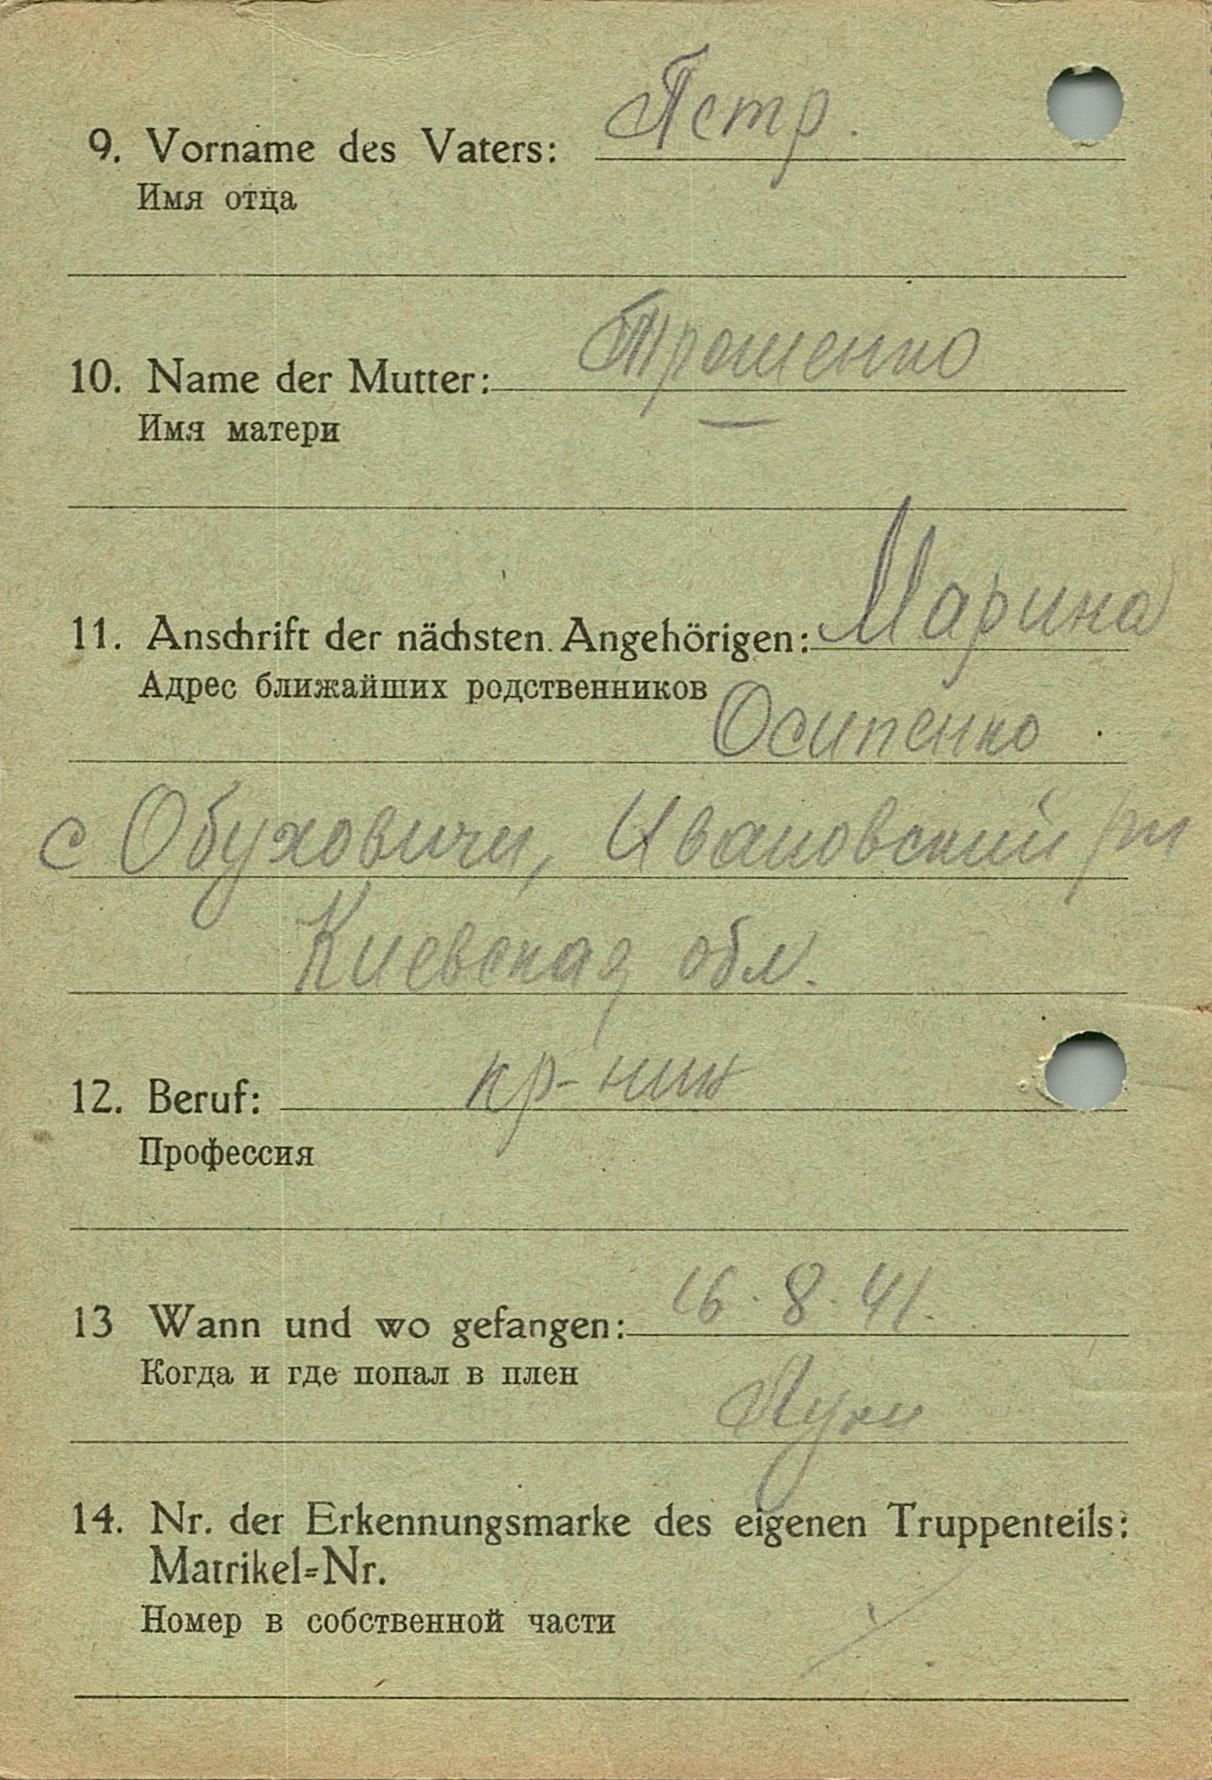 9. Vorname des Vaters: Петр.
Имя отца
10. Name der Mutter: Трошенко
Имя матери
11. Anschrift der nächsten Angehörigen: Марина
Адрес ближайших родственников
Осипенко
с Обуховичи, Ивановский рн
Киевская обл.
12. Beruf: кр-ник
Профессия
13 Wann und wo gefangen: 16.8.41.
Когда и где попал в плен
Луки
14. Nr. der Erkennungsmarke des eigenen Truppenteils:
Matrikel=Nr.
Номер в собственной части